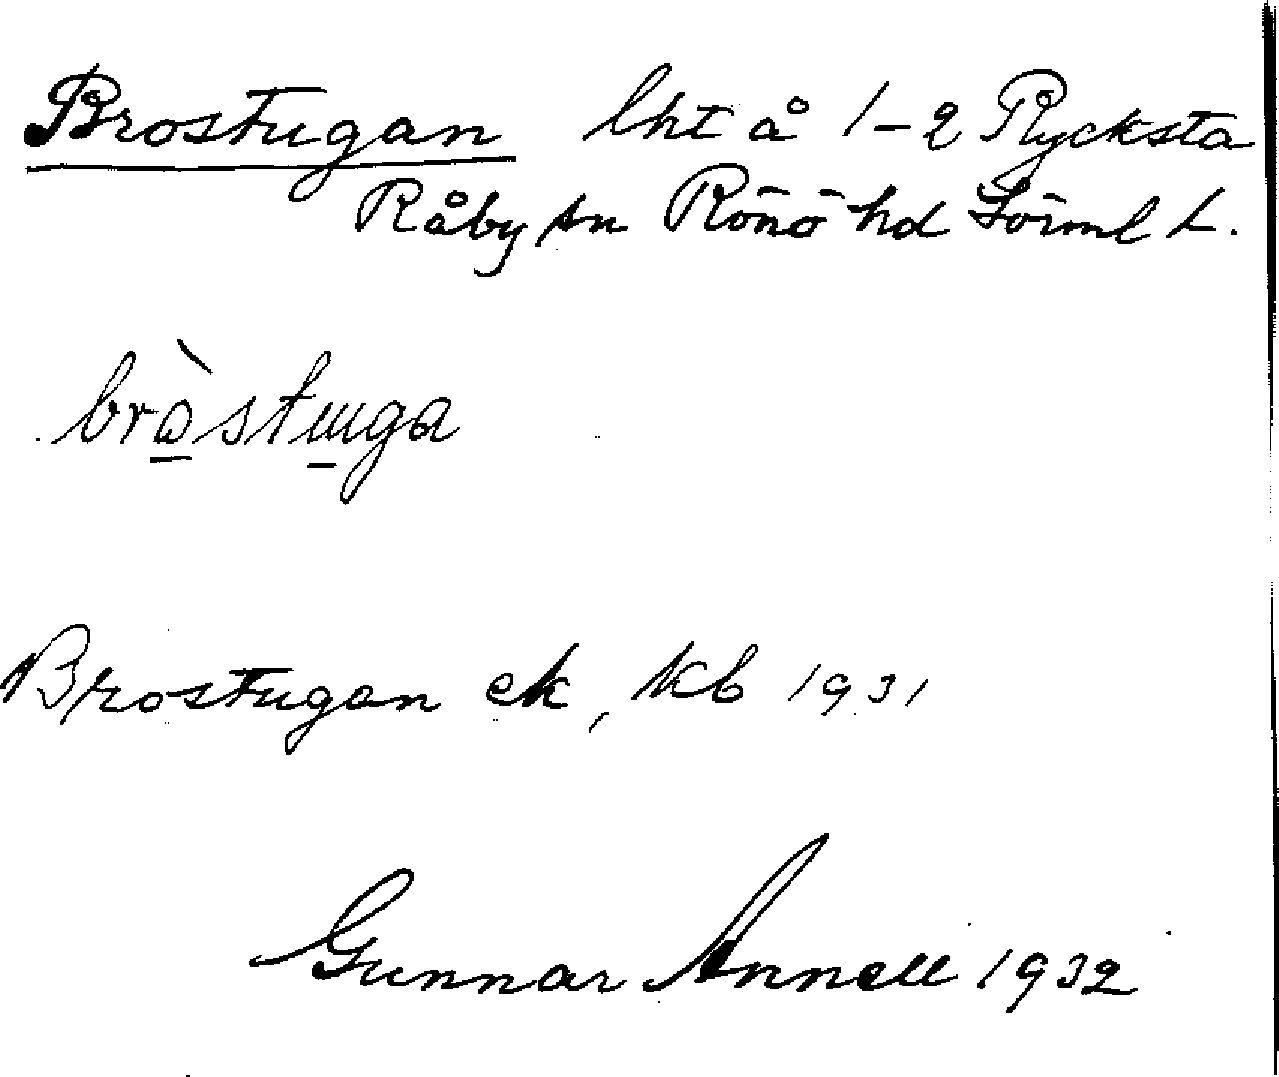 Brostugan lht å 1-2 Rycksta
Råby sn Rönö hd Sörml L.
bròstuga
Brostugan ek, kb 1931
Gunnar Annell 1932